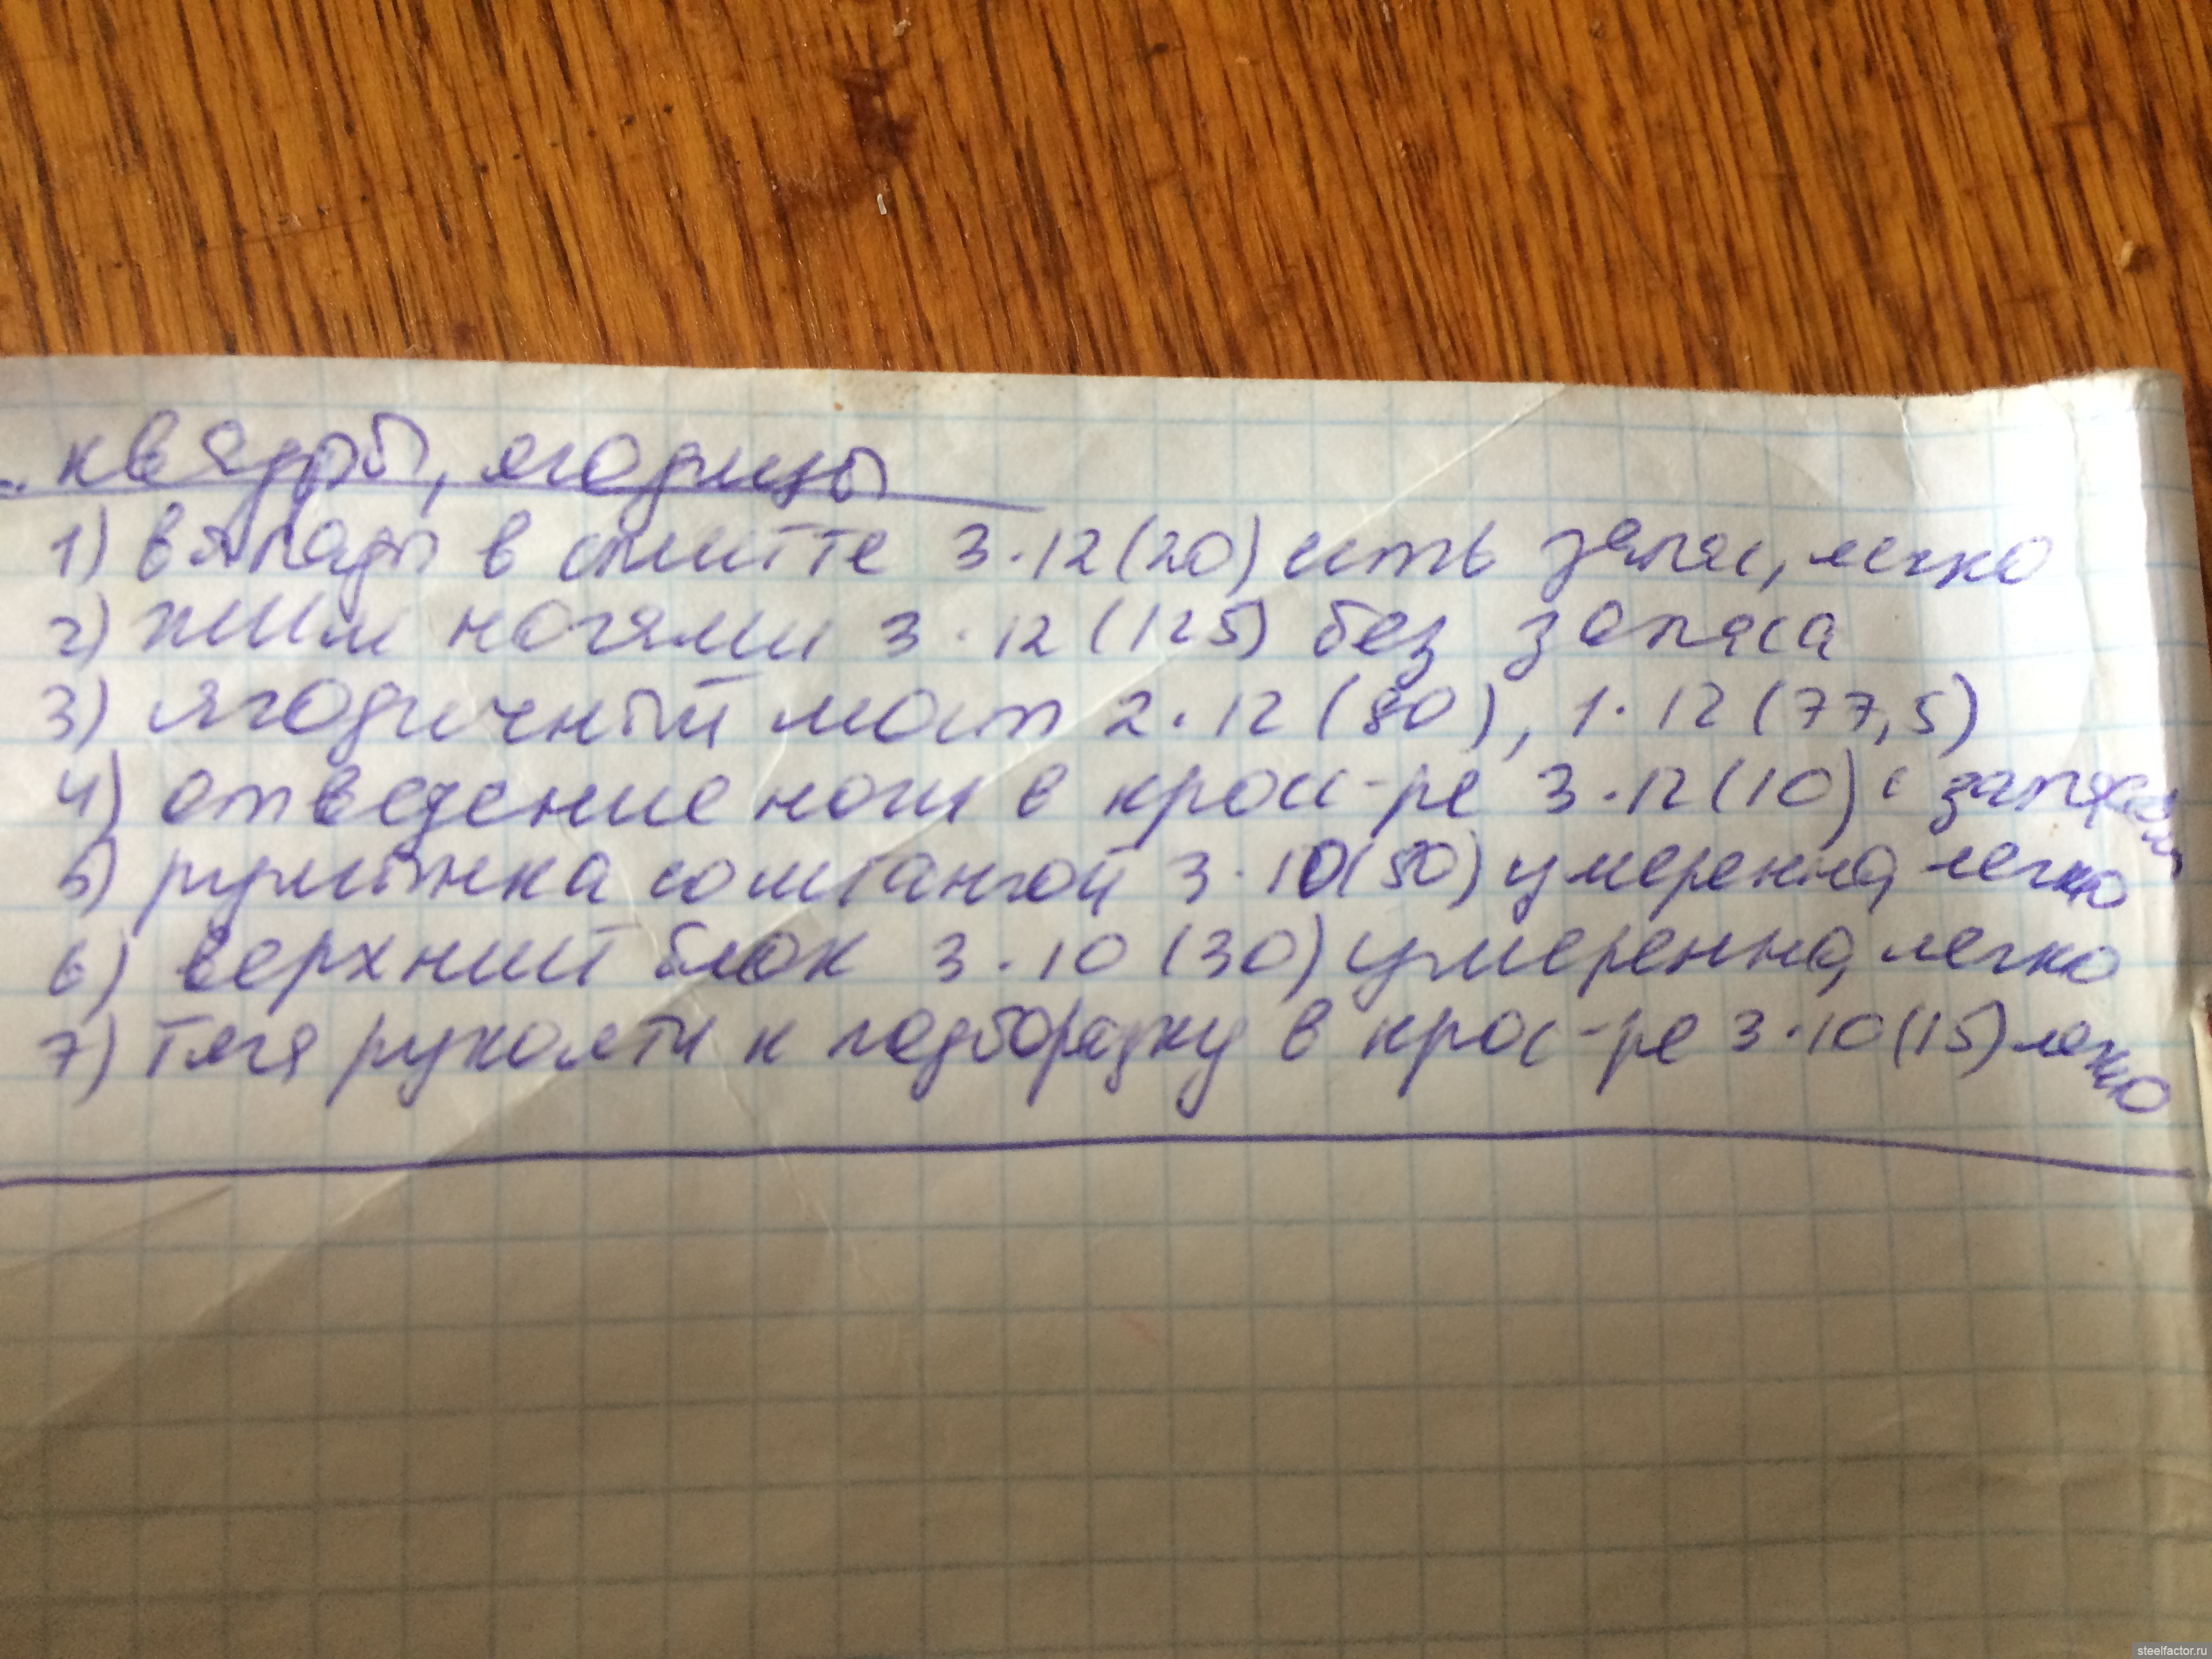 квадры, ягодицы
1) выпады в смитте 3·12(20) есть запас, легко
2) жим ногами 3·12(125) без запаса
3) ягодичный мост 2·12(80), 1·12(77,5)
4) отведение ноги в кросс-ре 3·12(10) с запасом
5) румынка со штангой 3·10(50) умеренно, легко
6) верхний блок 3·10(30) умеренно, легко
7) тяга рукояти к подбородку в крос-ре 3·10(15) легко
steelfactor.ru